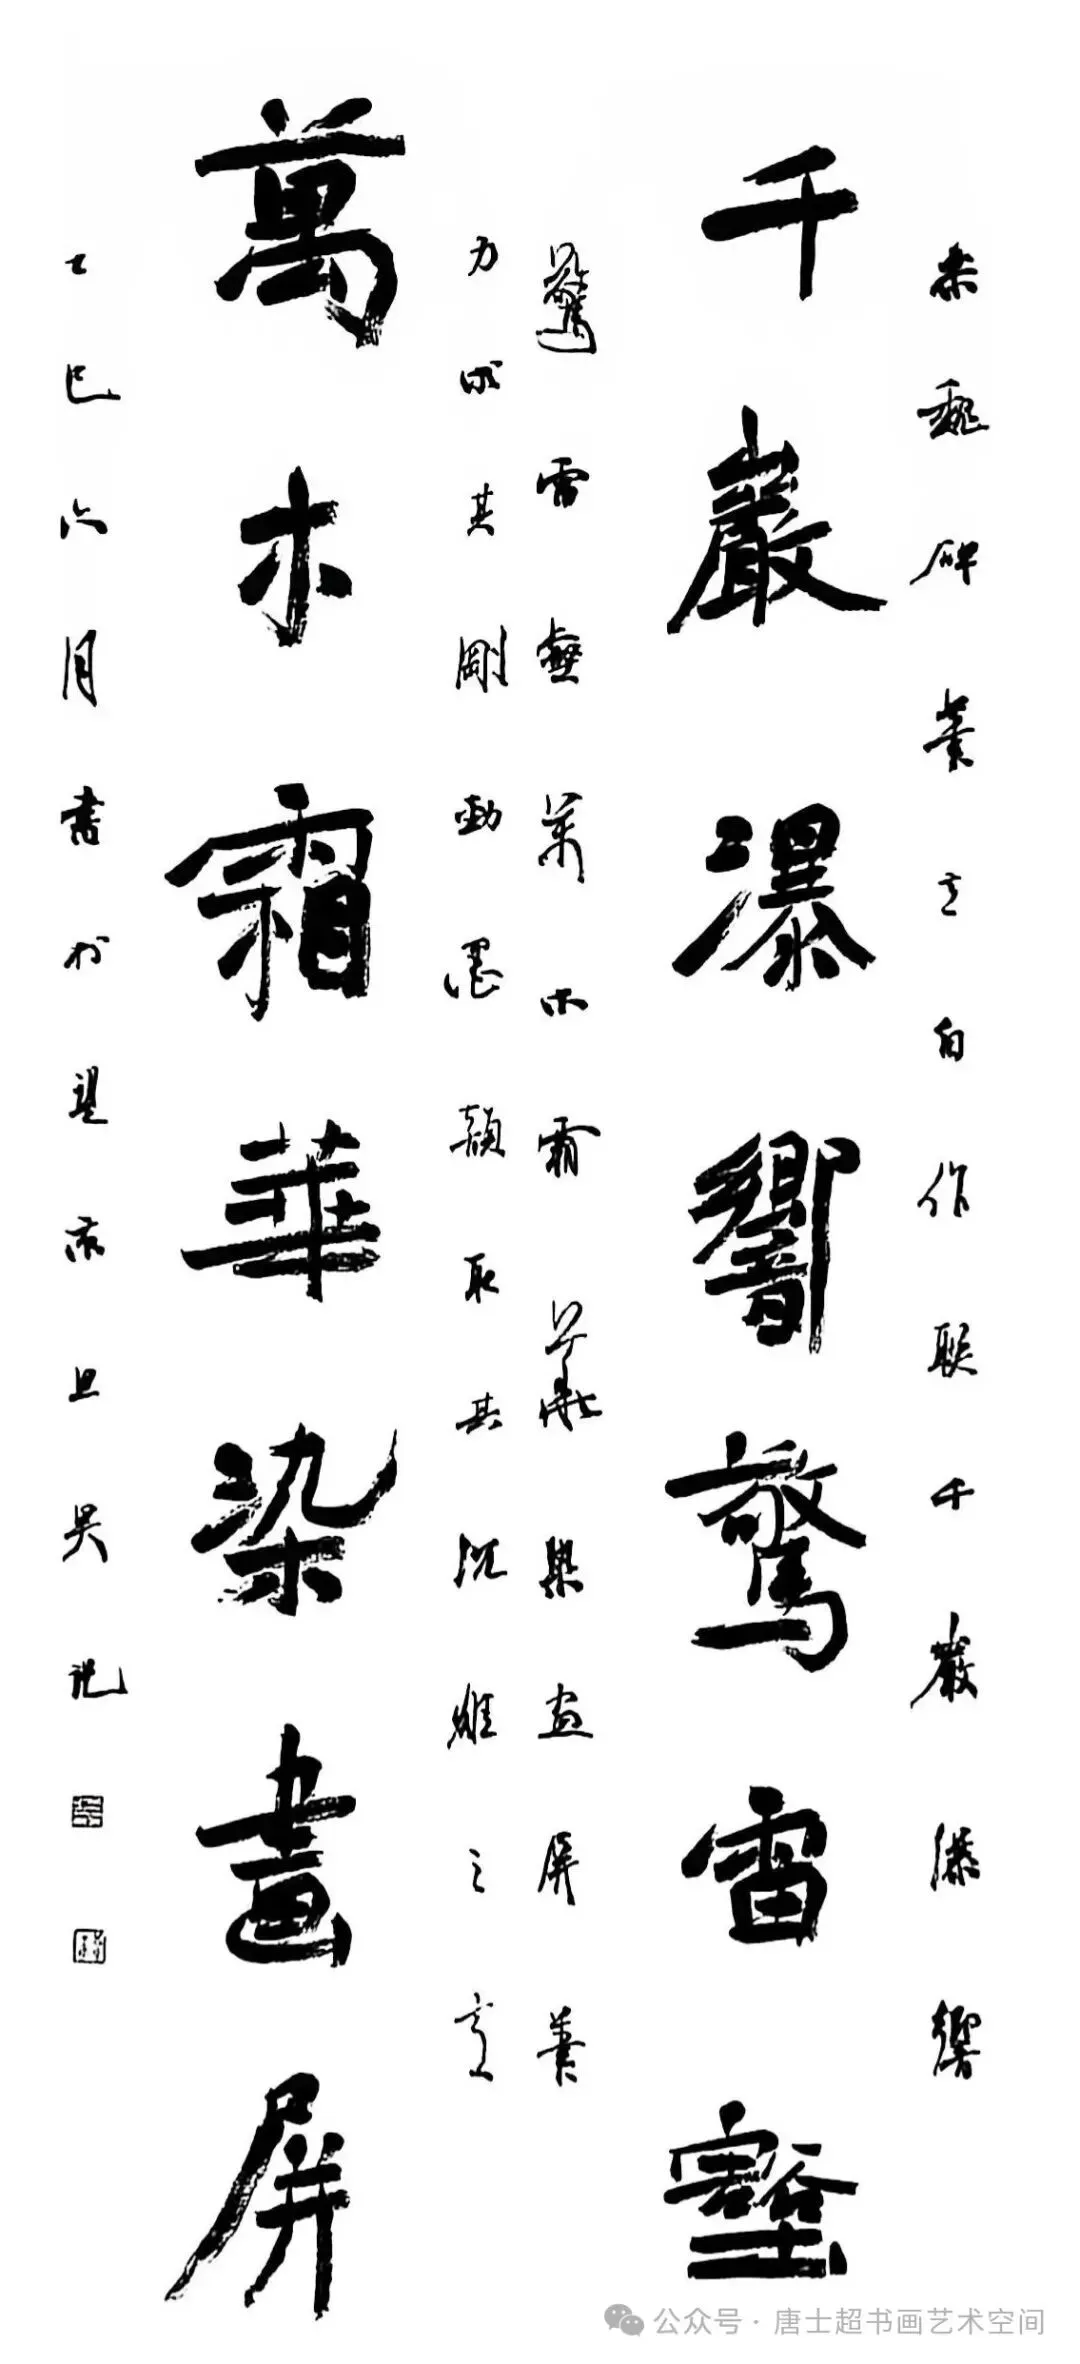 來魏碑筆意自作联千巖瀑響
千巖瀑響驚雷壑
驚雷壑萬木霜華染畫屏筆
力求其剛勁墨韻取其沉雄之意
萬木霜華染畫屏
乙巳六月書於望京旦吴悦
公众号·唐士超书画艺术空间